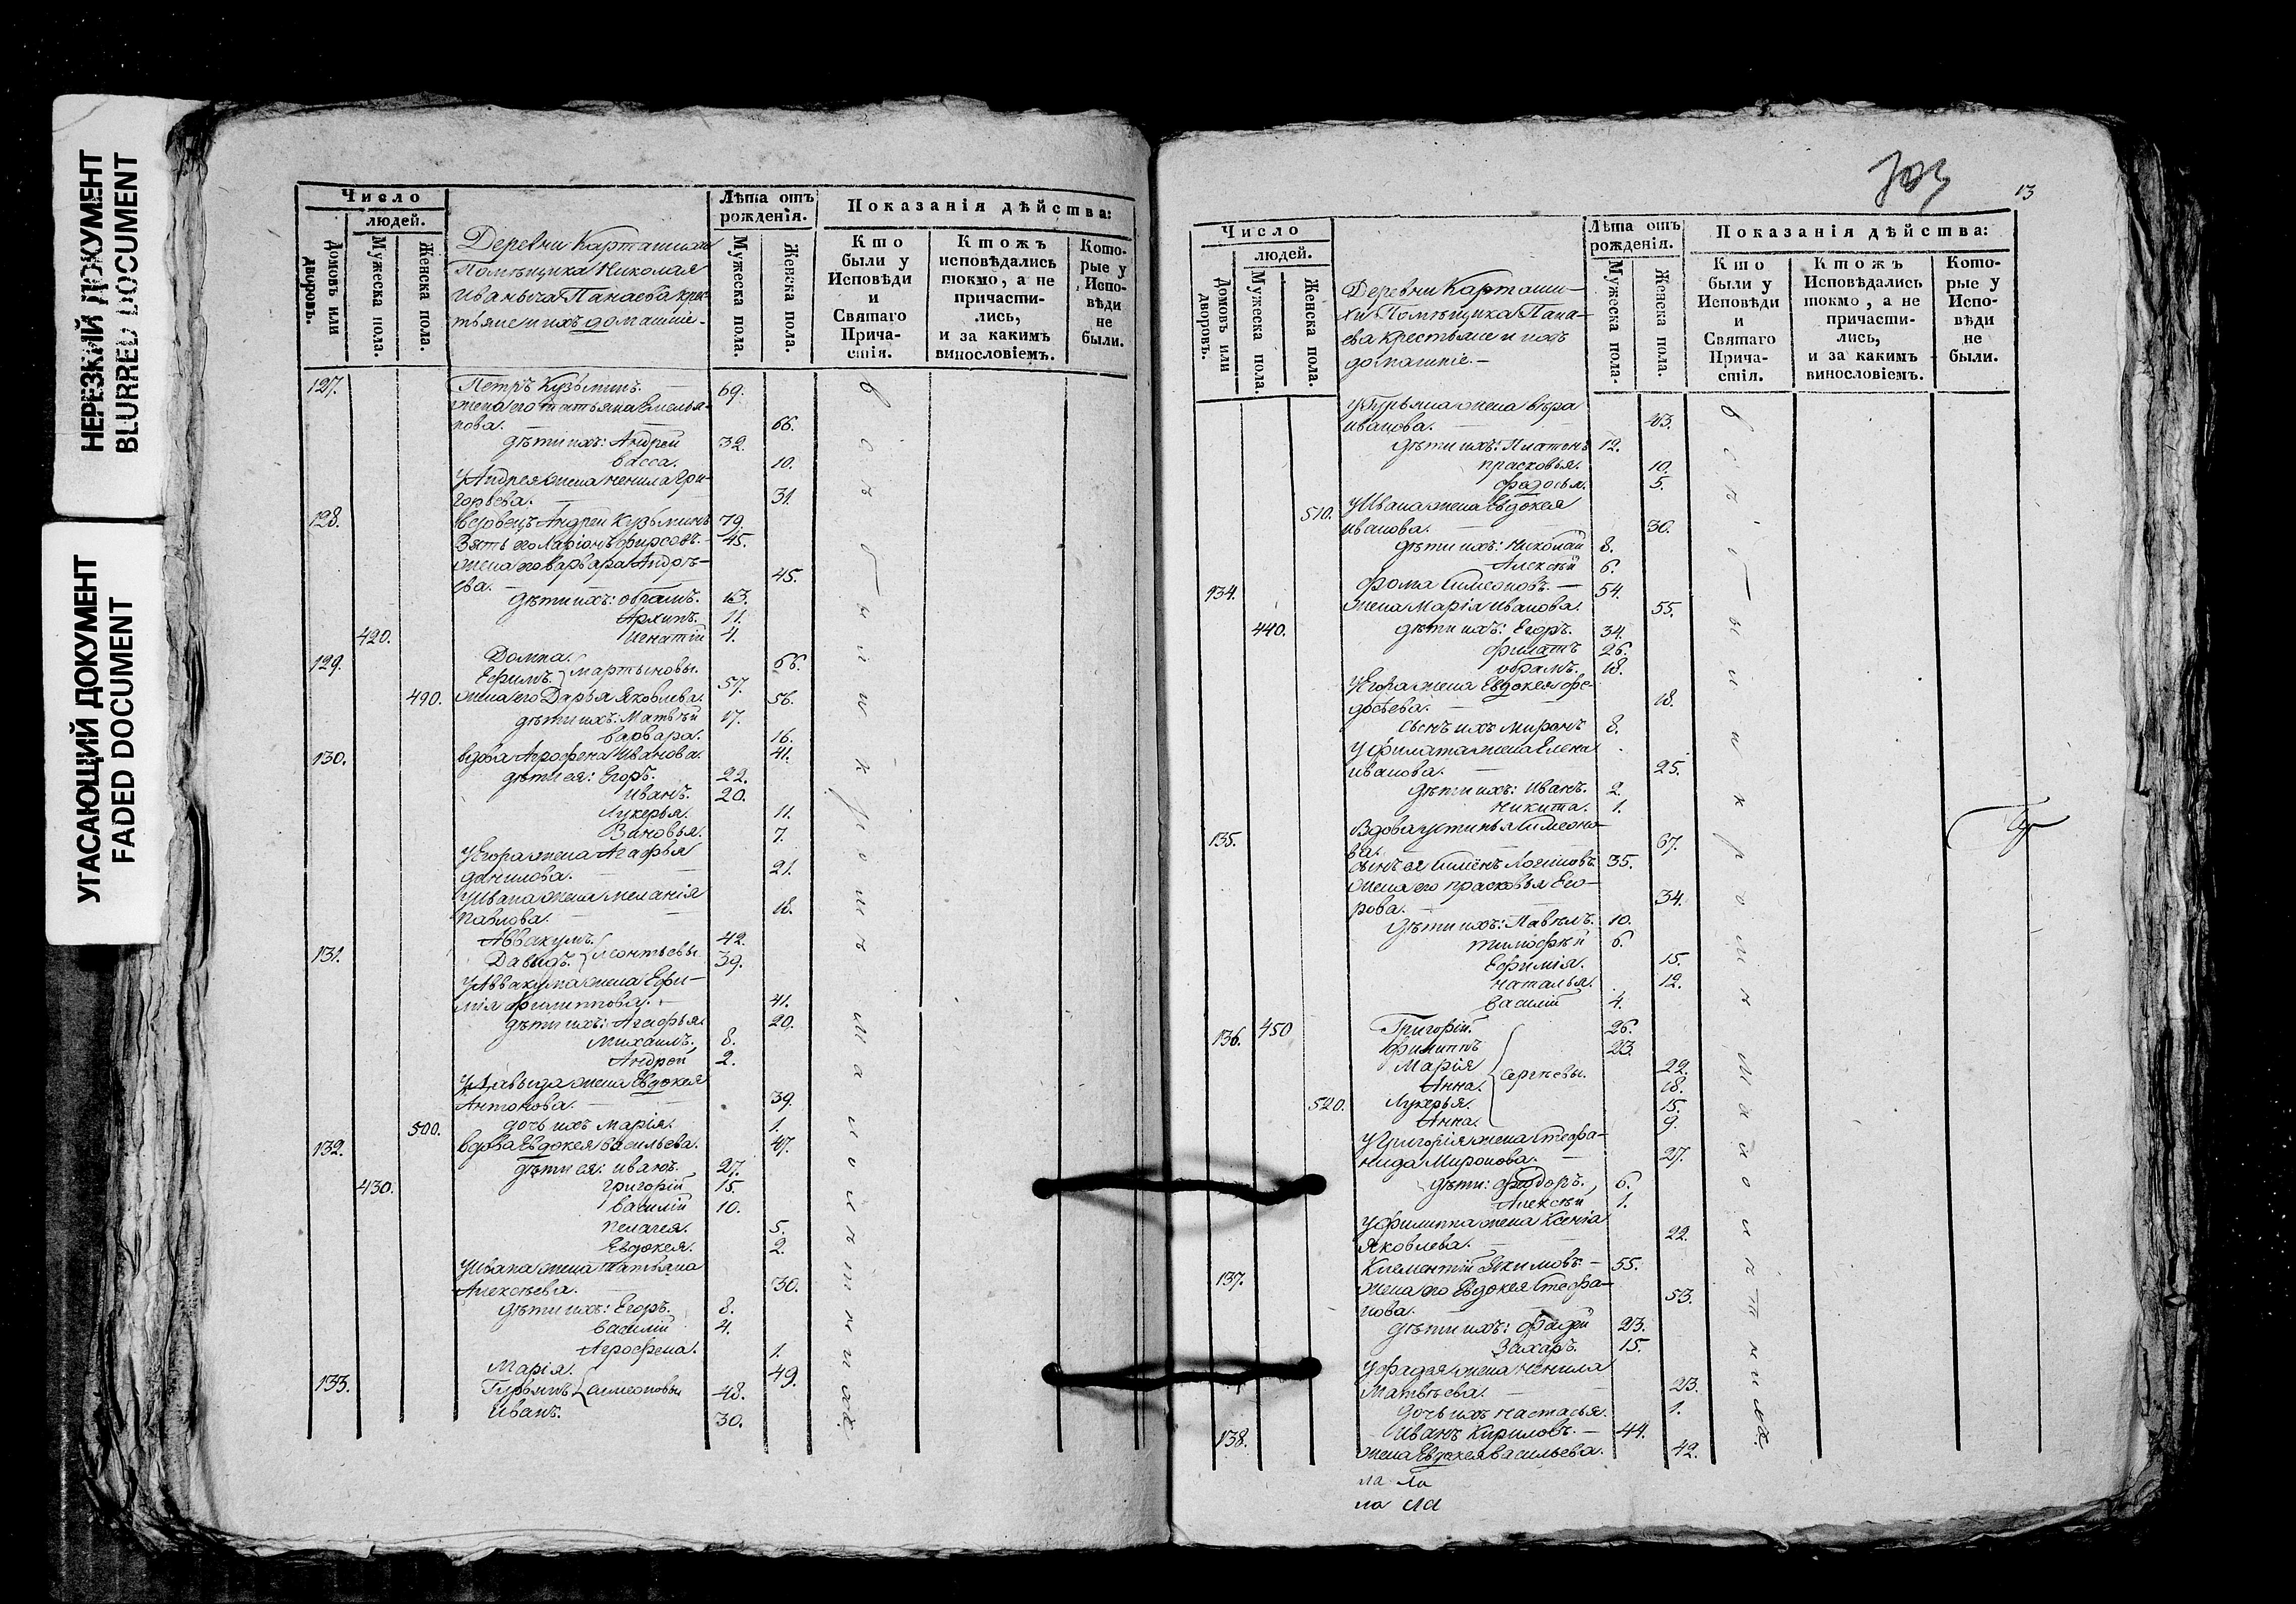 НЕРЕЗКИЙ ДОКУМЕНТ
BLURRED DOCUMENT
УГАСАЮЩИЙ ДОКУМЕНТ
FADED DOCUMENT
Число
людей.
Домовъ или дворовъ.
Мужеска пола.
Женска пола.
Деревни Карташихи
Помѣщика Николая
Иваныча Панаева крес-
тьяне и ихъ домашнiе.
Лѣта отъ рожденiя.
Мужеска пола.
Женска пола.
Показанiя дѣйства:
Кто были у Исповѣди и Святаго Прича-стiя.
Ктожъ исповѣдались токмо, а не причасти-лись, и за какимъ винословiемъ.
Кото-рые у Испо-вѣди не были.
127. Петръ Кузьминъ. 69.
жена его татьяна Емелья-
нова. 66.
дѣти ихъ: Андрей 32.
васса. 10.
У Андрея жена ненила Гри-
горьева. 31.
128. вдовецъ Андрей Кузьминъ 79.
Зять его Ларiонъ фирсовъ. 45.
жена его варвара Андрѣ-
ева. 45.
дѣти ихъ: обрамъ. 13.
Архипъ. 11.
420. игнатiй 4.
129. Домна. 66.
Ефимъ. мартыновы. 57.
490. жена его Дарья Яковлева. 56.
дѣти ихъ: Матвѣй 17.
варвара. 16.
130. вдова Агрофена Иванова. 41.
дѣти ея: Егоръ. 22.
Иванъ. 20.
Лукерья. 11.
Зиновья. 7.
У Егора жена Агафья
данилова. 21.
У Ивана жена меланiя
Павлова. 18.
131. Аввакумъ. 42.
Давыдъ. леонтьевы 39.
У Аввакума жена Ефи-
мiя филиппова. 41.
дѣти ихъ: Агафья. 20.
Михаилъ. 8.
Андрей 2.
У Давыда жена Евдокея
Антонова. 39.
500. дочь ихъ Марiя. 1.
132. вдова Евдокея васильева. 47.
дѣти ея: иванъ. 27.
430. григорiй 15.
василiй 10.
пелагея. 5.
Евдокея. 2.
У Ивана жена татьяна
Алексѣева. 30.
дѣти ихъ: Егоръ. 8.
василiй 4.
Агрофена. 1.
133. Марiя. 49.
Гурьянъ симеоновы 48.
Иванъ. 30.
703
13
Число
людей.
Домовъ или дворовъ.
Мужеска пола.
Женска пола.
Деревни Карташи-
хи Помѣщика Пана-
ева крестьяне и ихъ
домашнiе.
Лѣта отъ рожденiя.
Мужеска пола.
Женска пола.
Показанiя дѣйства:
Кто были у Исповѣди и Святаго Прича-стiя.
Ктожъ Исповѣдались токмо, а не причасти-лись, и за какимъ винословiемъ.
Кото-рые у Испо-вѣди не были.
У Гурьяна жена вѣра
иванова. 43.
дѣти ихъ: Платонъ 12.
прасковья. 10.
федосья. 5.
510. У Ивана жена Евдокея
иванова. 30.
дѣти ихъ: Николай 8.
Алексѣй 6.
134. фома симеоновъ. 54.
жена Марiя Иванова. 55.
440. дѣти ихъ: Егоръ. 34.
филатъ 26.
обрамъ. 18.
У Егора жена Евдокея фе-
досѣева. 18.
сынъ ихъ миронъ 8.
У филата жена Елена
иванова. 25.
дѣти ихъ: Иванъ. 2.
никита. 1.
135. Вдова устинья симеоно-
ва. 67.
сынъ ея симеонъ Логиновъ. 35.
жена его прасковья Его-
рова. 34.
дѣти ихъ: Павелъ. 10.
тимофѣй 6.
Ефимiя. 15.
наталья. 12.
василiй 4.
136. 450 Григорiй. 26.
филиппъ 23.
Марiя 22.
Анна. сергѣевы. 18.
520. Лукерья. 15.
Анна. 9.
У Григорiя жена стефа-
нида Миронова. 27.
дѣти: федоръ. 6.
Алексѣй 1.
У филиппа жена Ксенiа
Яковлева. 22.
137. Климентiй Якимовъ. 55.
жена его Евдокея стефа-
нова. 53.
дѣти ихъ: фадѣй 23.
Захаръ. 15.
У фадея жена ненила
Матвѣева. 23.
дочь ихъ настасья. 1.
138. Иванъ Кириловъ. 44.
жена Евдокея васильева. 42.